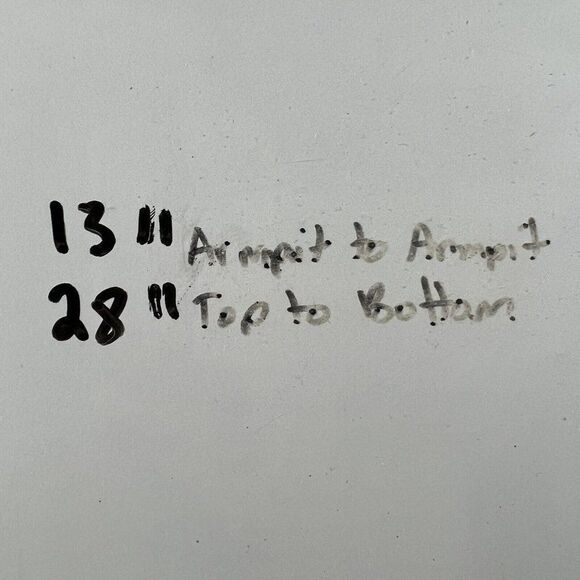 13" Armpit to Armpit
28" Top to Bottom